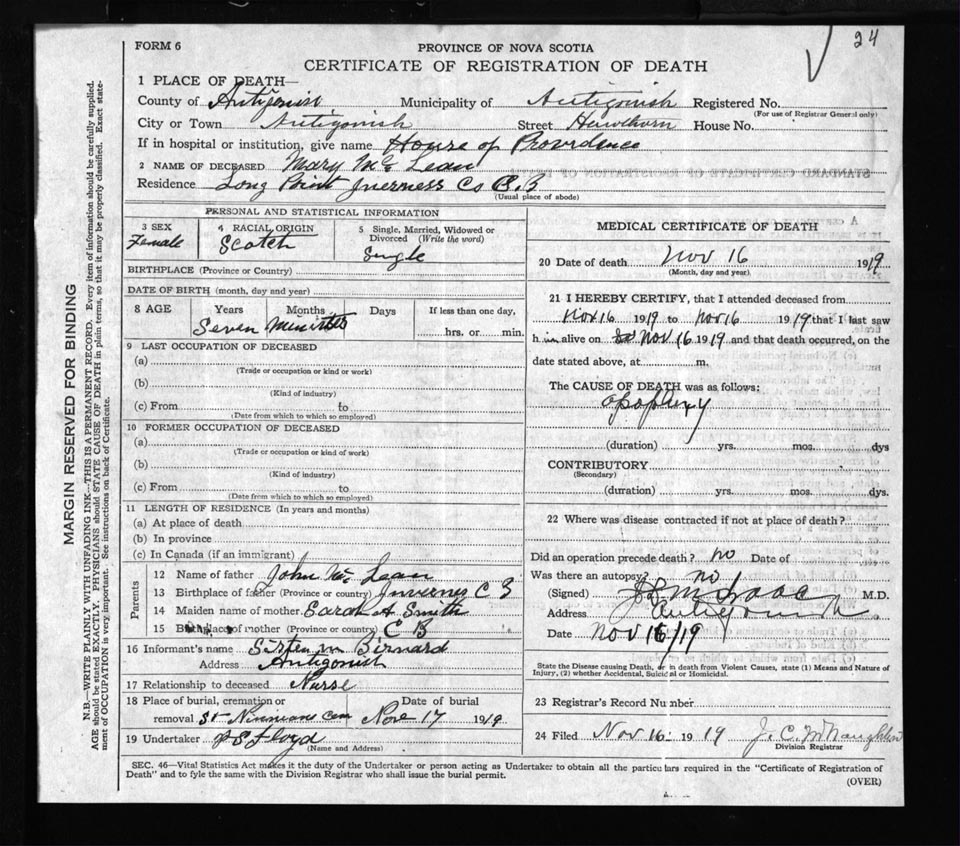 24
FORM 6
PROVINCE OF NOVA SCOTIA
CERTIFICATE OF REGISTRATION OF DEATH
1 PLACE OF DEATH—
County of Antigonish Municipality of Antigonish Registered No.
(For use of Registrar General only)
City or Town Antigonish Street Hawthorn House No.
If in hospital or institution, give name House of Providence
2 NAME OF DECEASED Mary Mc Lean
Residence Long Point Inverness Co C.B
(Usual place of abode)
MARGIN RESERVED FOR BINDING
N.B.—WRITE PLAINLY WITH UNFADING INK—THIS IS A PERMANENT RECORD. Every item of information should be carefully supplied.
AGE should be stated EXACTLY. PHYSICIANS should STATE CAUSE OF DEATH in plain terms, so that it may be properly classified. Exact state-
ment of OCCUPATION is very important. See instructions on back of Certificate.
PERSONAL AND STATISTICAL INFORMATION
3 SEX 4 RACIAL ORIGIN 5 Single, Married, Widowed or
Divorced (Write the word)
Female Scotch Single
BIRTHPLACE (Province or Country)
DATE OF BIRTH (month, day and year)
8 AGE Years Months Days If less than one day,
Seven Minutes hrs. or min.
9 LAST OCCUPATION OF DECEASED
(a)
(Trade or occupation or kind or work)
(b)
(Kind of industry)
(c) From to
(Date from which to which so employed)
10 FORMER OCCUPATION OF DECEASED
(a)
(Trade or occupation or kind of work)
(b)
(Kind of industry)
(c) From to
(Date from which to which so employed)
11 LENGTH OF RESIDENCE (In years and months)
(a) At place of death
(b) In province
(c) In Canada (if an immigrant)
Parents
12 Name of father John Mc Lean
13 Birthplace of father (Province or country) C B
14 Maiden name of mother Sarah A Smith
15 Birthplace of mother (Province or country) C B
16 Informant's name Bernard
Address Antigonish
17 Relationship to deceased Nurse
18 Place of burial, cremation or Date of burial
removal St Ninnians Cem Nove 17 1919
19 Undertaker P S Floyd
(Name and Address)
MEDICAL CERTIFICATE OF DEATH
20 Date of death Nov 16 1919
(Month, day and year)
21 I HEREBY CERTIFY, that I attended deceased from
Nov 16 1919 to Nov 16 1919 that I last saw
h alive on Nov 16 1919 and that death occurred, on the
date stated above, at m.
The CAUSE OF DEATH was as follows:
apoplexy
(duration) yrs. mos. dys
CONTRIBUTORY
(Secondary)
(duration) yrs. mos. dys.
22 Where was disease contracted if not at place of death?
Did an operation precede death? no Date of
Was there an autopsy? no
(Signed) M.D.
Address Antigonish
Date Nov 16/19
State the Disease causing Death, or in death from Violent Causes, state (1) Means and Nature of
Injury, (2) whether Accidental, Suicidal or Homicidal.
23 Registrar's Record Number
24 Filed Nov 16 1919 J. C. McNaughton
Division Registrar
SEC. 46—Vital Statistics Act makes it the duty of the Undertaker or person acting as Undertaker to obtain all the particulars required in the "Certificate of Registration of
Death" and to fyle the same with the Division Registrar who shall issue the burial permit.
(OVER)